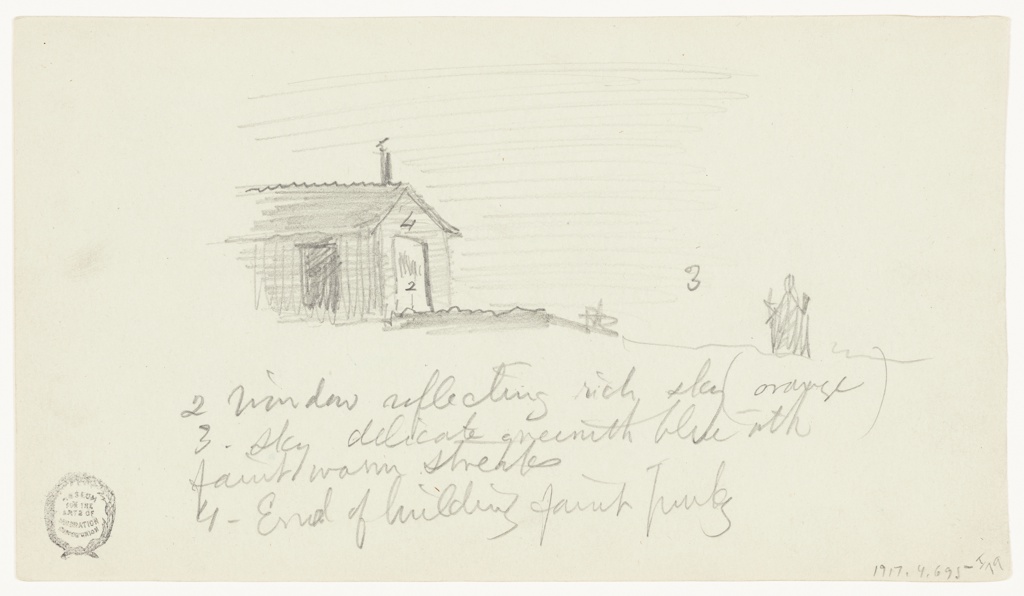 4
2
3
2 Window reflecting rich sky (orange)
3. Sky delicate greenish blue with
faint warm streaks
4 - End of building faint
MUSEUM
FOR THE
ARTS OF
DECORATION
COOPER UNION
1917.4.695-